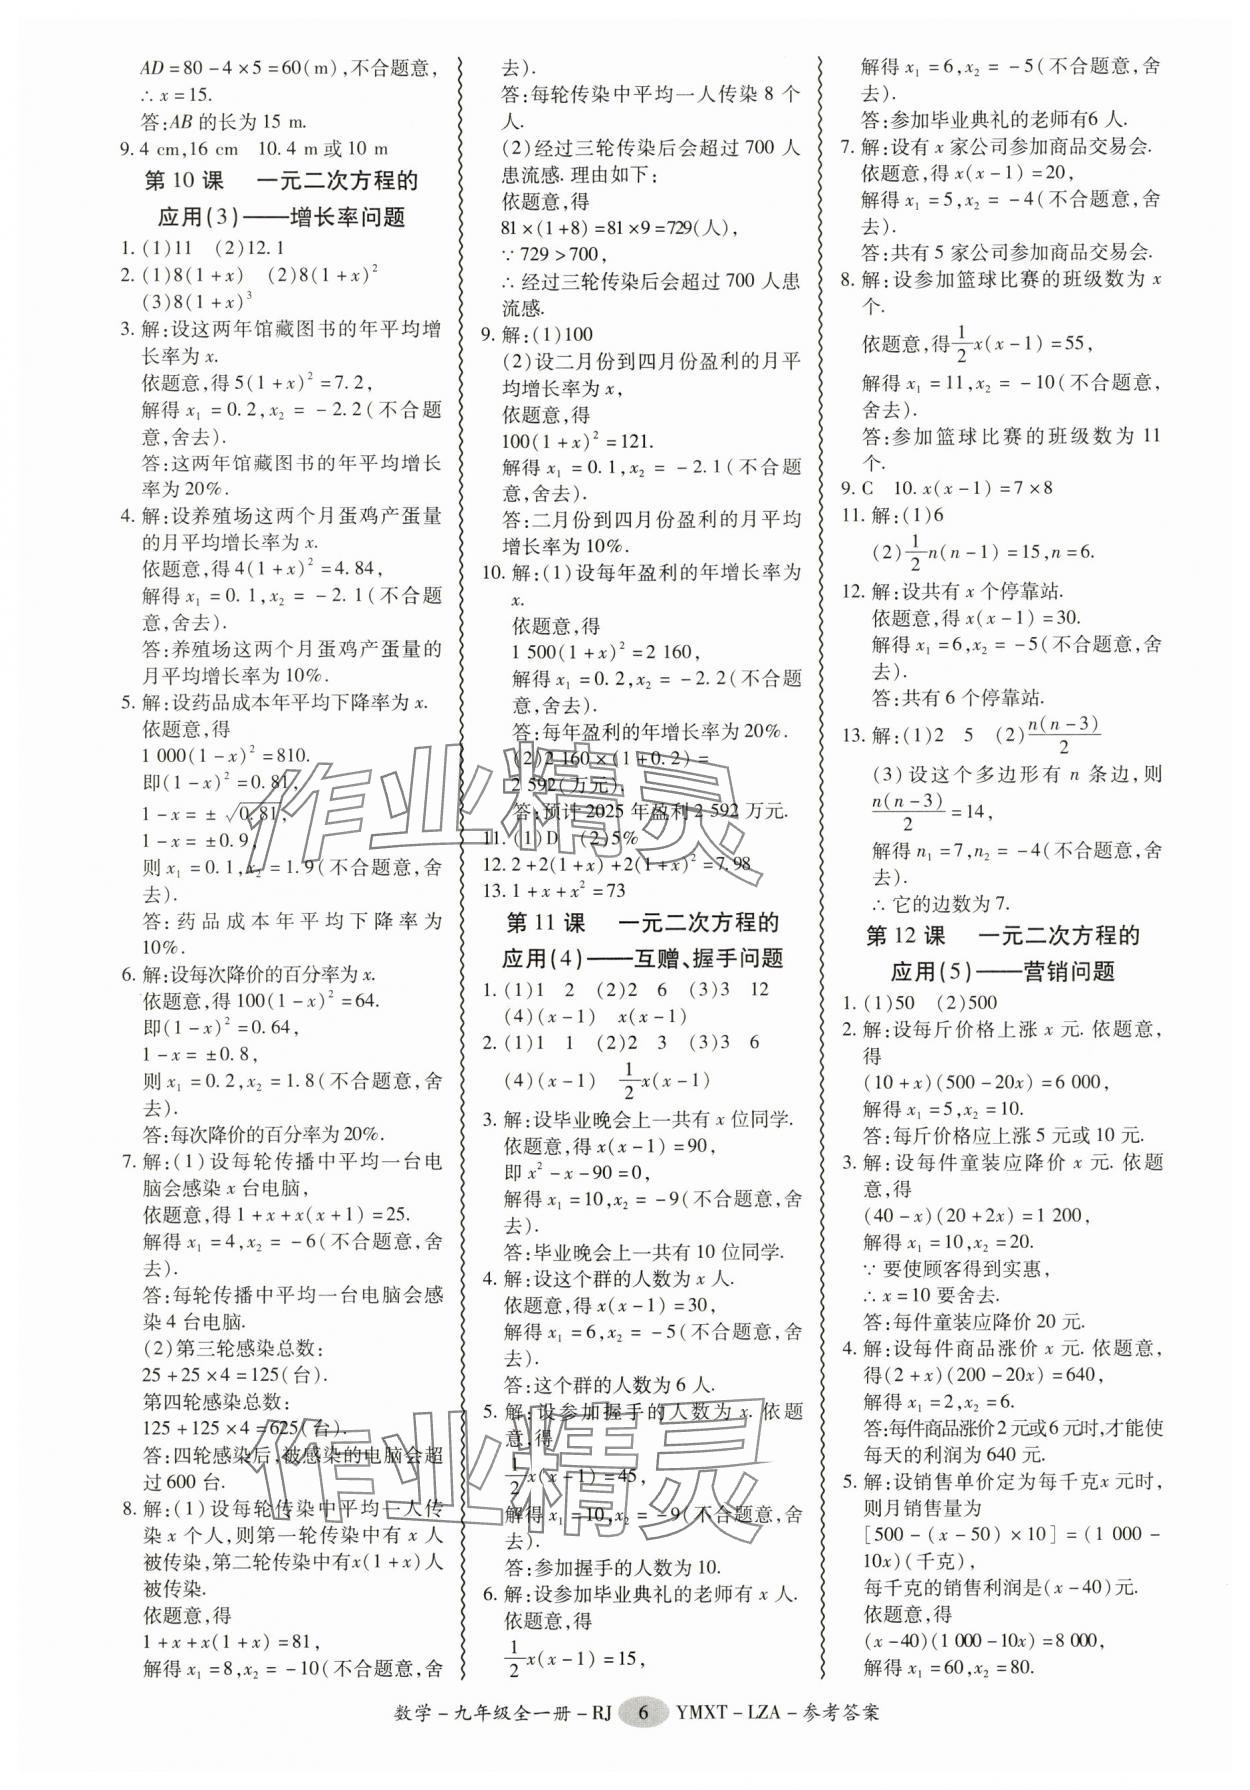 AD=80-4×5=60(m),不合题意,
∴x=15.
答:AB的长为15 m.
9.4 cm,16 cm　10.4 m或10 m
第10课　一元二次方程的
应用(3)——增长率问题
1.(1)11　(2)12.1
2.(1)8(1+x)　(2)8(1+x)²
(3)8(1+x)³
3.解:设这两年馆藏图书的年平均增
长率为x.
依题意,得5(1+x)²=7.2,
解得x₁=0.2,x₂=-2.2(不合题
意,舍去).
答:这两年馆藏图书的年平均增长
率为20%.
4.解:设养殖场这两个月蛋鸡产蛋量
的月平均增长率为x.
依题意,得4(1+x)²=4.84,
解得x₁=0.1,x₂=-2.1(不合题
意,舍去).
答:养殖场这两个月蛋鸡产蛋量的
月平均增长率为10%.
5.解:设药品成本年平均下降率为x.
依题意,得
1 000(1-x)²=810.
即(1-x)²=0.81,
1-x=±√0.81,
1-x=±0.9,
则x₁=0.1,x₂=1.9(不合题意,舍
去).
答:药品成本年平均下降率为
10%.
6.解:设每次降价的百分率为x.
依题意,得100(1-x)²=64.
即(1-x)²=0.64,
1-x=±0.8,
则x₁=0.2,x₂=1.8(不合题意,舍
去).
答:每次降价的百分率为20%.
7.解:(1)设每轮传播中平均一台电
脑会感染x台电脑,
依题意,得1+x+x(x+1)=25.
解得x₁=4,x₂=-6(不合题意,舍
去).
答:每轮传播中平均一台电脑会感
染4台电脑.
(2)第三轮感染总数:
25+25×4=125(台).
第四轮感染总数:
125+125×4=625(台).
答:四轮感染后,被感染的电脑会超
过600台.
8.解:(1)设每轮传染中平均一人传
染x个人,则第一轮传染中有x人
被传染,第二轮传染中有x(1+x)人
被传染.
依题意,得
1+x+x(1+x)=81,
解得x₁=8,x₂=-10(不合题意,舍
去).
答:每轮传染中平均一人传染8个
人.
(2)经过三轮传染后会超过700人
患流感.理由如下:
依题意,得
81×(1+8)=81×9=729(人),
∵729>700,
∴经过三轮传染后会超过700人患
流感.
9.解:(1)100
(2)设二月份到四月份盈利的月平
均增长率为x,
依题意,得
100(1+x)²=121.
解得x₁=0.1,x₂=-2.1(不合题
意,舍去).
答:二月份到四月份盈利的月平均
增长率为10%.
10.解:(1)设每年盈利的年增长率为
x.
依题意,得
1 500(1+x)²=2 160,
解得x₁=0.2,x₂=-2.2(不合题
意,舍去).
答:每年盈利的年增长率为20%.
(2)2 160×(1+0.2)=
2 592(万元).
答:预计2025年盈利2 592万元.
11.(1)D　(2)5%
12.2+2(1+x)+2(1+x)²=7.98
13.1+x+x²=73
第11课　一元二次方程的
应用(4)——互赠、握手问题
1.(1)1　2　(2)2　6　(3)3　12
(4)(x-1)　x(x-1)
2.(1)1　1　(2)2　3　(3)3　6
(4)(x-1)　1/2x(x-1)
3.解:设毕业晚会上一共有x位同学.
依题意,得x(x-1)=90,
即x²-x-90=0,
解得x₁=10,x₂=-9(不合题意,舍
去).
答:毕业晚会上一共有10位同学.
4.解:设这个群的人数为x人.
依题意,得x(x-1)=30,
解得x₁=6,x₂=-5(不合题意,舍
去).
答:这个群的人数为6人.
5.解:设参加握手的人数为x.依题
意,得
1/2x(x-1)=45,
解得x₁=10,x₂=-9(不合题意,舍
去).
答:参加握手的人数为10.
6.解:设参加毕业典礼的老师有x人.
依题意,得
1/2x(x-1)=15,
解得x₁=6,x₂=-5(不合题意,舍
去).
答:参加毕业典礼的老师有6人.
7.解:设有x家公司参加商品交易会.
依题意,得x(x-1)=20,
解得x₁=5,x₂=-4(不合题意,舍
去).
答:共有5家公司参加商品交易会.
8.解:设参加篮球比赛的班级数为x
个.
依题意,得1/2x(x-1)=55,
解得x₁=11,x₂=-10(不合题意,
舍去).
答:参加篮球比赛的班级数为11
个.
9.C　10.x(x-1)=7×8
11.解:(1)6
(2)1/2n(n-1)=15,n=6.
12.解:设共有x个停靠站.
依题意,得x(x-1)=30.
解得x₁=6,x₂=-5(不合题意,舍
去).
答:共有6个停靠站.
13.解:(1)2　5　(2)n(n-3)/2
(3)设这个多边形有n条边,则
n(n-3)/2=14,
解得n₁=7,n₂=-4(不合题意,舍
去).
∴它的边数为7.
第12课　一元二次方程的
应用(5)——营销问题
1.(1)50　(2)500
2.解:设每斤价格上涨x元.依题意,
得
(10+x)(500-20x)=6 000,
解得x₁=5,x₂=10.
答:每斤价格应上涨5元或10元.
3.解:设每件童装应降价x元.依题
意,得
(40-x)(20+2x)=1 200,
解得x₁=10,x₂=20.
∵要使顾客得到实惠,
∴x=10要舍去.
答:每件童装应降价20元.
4.解:设每件商品涨价x元.依题意,
得(2+x)(200-20x)=640,
解得x₁=2,x₂=6.
答:每件商品涨价2元或6元时,才能使
每天的利润为640元.
5.解:设销售单价定为每千克x元时,
则月销售量为
[500-(x-50)×10]=(1 000-
10x)(千克),
每千克的销售利润是(x-40)元.
依题意,得
(x-40)(1 000-10x)=8 000,
解得x₁=60,x₂=80.
数学-九年级全一册-RJ　6　YMXT-LZA-参考答案
作业精灵
作业精灵